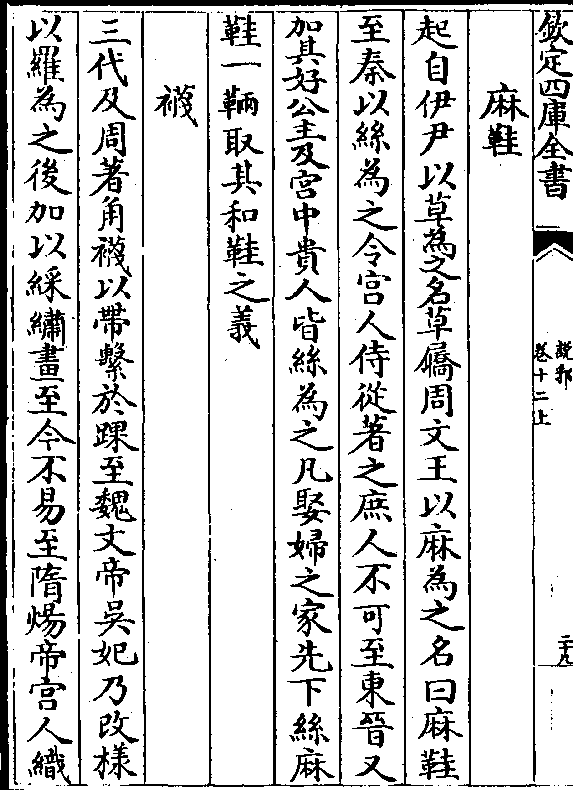 欽定四庫全書
說郛
卷十二上
二十九
麻鞋
起自伊尹以草為之名草屩周文王以麻為之名曰麻鞋
至秦以絲為之令宮人侍從著之庶人不可至東晉又
加其好公主及宮中貴人皆絲為之凡娶婦之家先下絲麻
鞋一緉取其和鞋之義
襪
三代及周著角襪以帶繫於踝至魏文帝吳妃乃改様
以羅為之後加以綵繡畫至今不易至隋煬帝宮人織